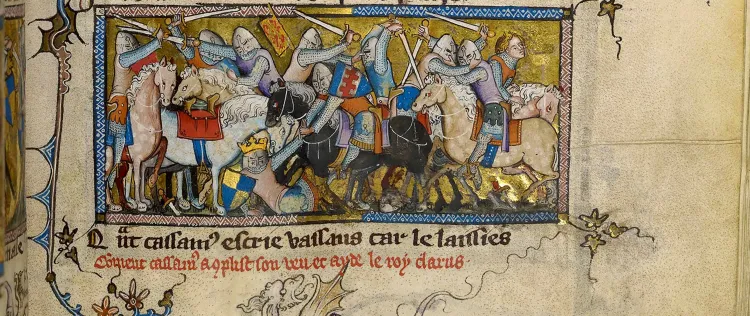 Qᵃnt cassamꝰ escrie vassaus car le laissies
Cōment cassamꝰ aꝯplist son veu et ayde le roy clarus·